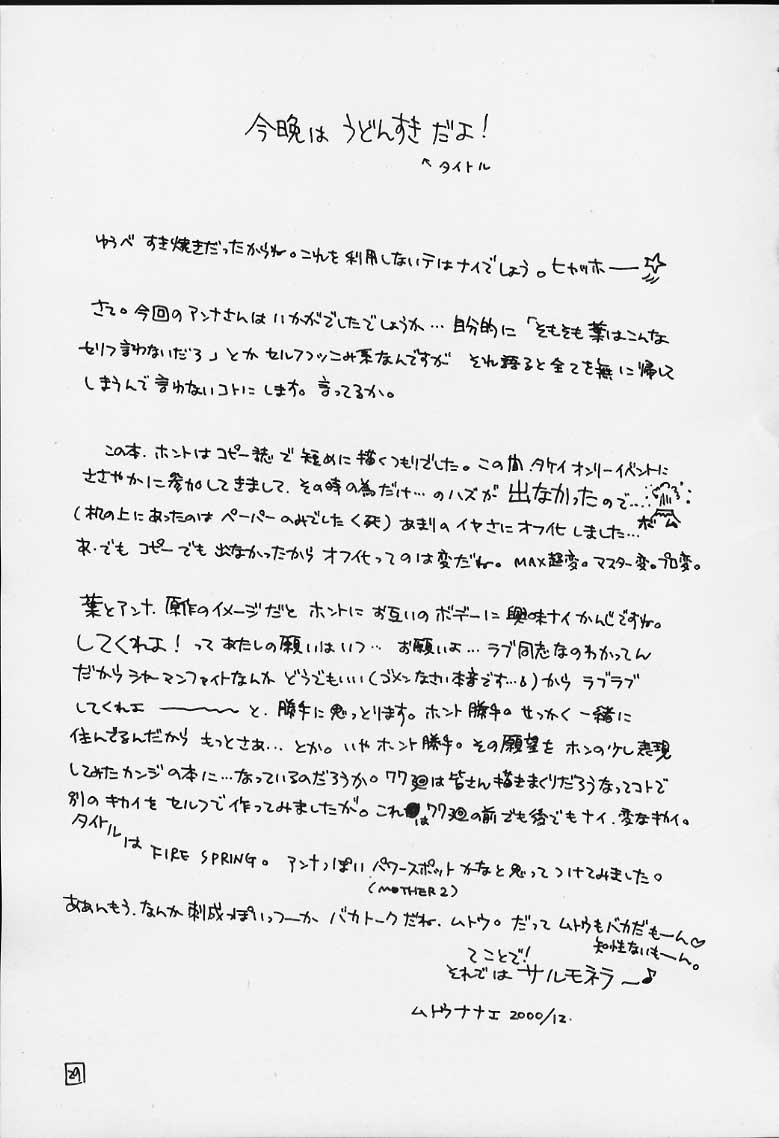 今晩は うどんすき だよ！
↖タイトル
ゆうべ すき焼きだったからね。これを利用しないテはナイでしょう。ヒャッホー──☆
さて。今回のアンナさんはいかがでしたでしょうか… 自分的に「そもそも葉はこんな
セリフ言わないだろ」とか セルフツッこみ系なんですが それ語ると全てを無に帰して
しまうんで言わないコトにします。言ってるか。
この本、ホントはコピー誌で短めに描くつもりでした。この間、タケイオンリーイベントに
ささやかに参加してきまして、その時の為だけ…のハズが 出なかったので…
ボム
(机の上にあったのは ペーパーのみでした<死) あまりのイヤさにオフ化しました…
あ、でも コピーでも 出なかったから オフ化ってのは変だね。MAX超変。マスター変。プロ変。
葉とアンナ、原作のイメージだと ホントに お互いのボデーに興味ナイかんじですね。
してくれよ！って あたしの願いはいつ… お願いよ… ラブ同志なのわかってん
だからシャーマンファイトなんか どうでもいい(ゴメンなさい本音です…)から ラブラブ
してくれよ ────〜 と、勝手に思っとります。ホント勝手。せっかく一緒に
住んでるんだから もっとさぁ… とか。いやホント勝手。その願望をホンの少し表現
してみたカンジの本に…なっているのだろうか。77廻は皆さん描きまくりだろうなってコトで
別のキカイをセルフで作ってみましたが。これは77廻の前でも後でもナイ、変なキカイ。
タイトルは FIRE SPRING。アンナっぽい パワースポットかなと思ってつけてみました。
(MOTHER2)
ああんもう、なんか 刺成っぽいっつーか バカトークだね、ムトウ。だって ムトウもバカだもーん♡
知性ないもーん。
てことで！
それでは サルモネラ〜♪
ムトウナナエ 2000/12.
29